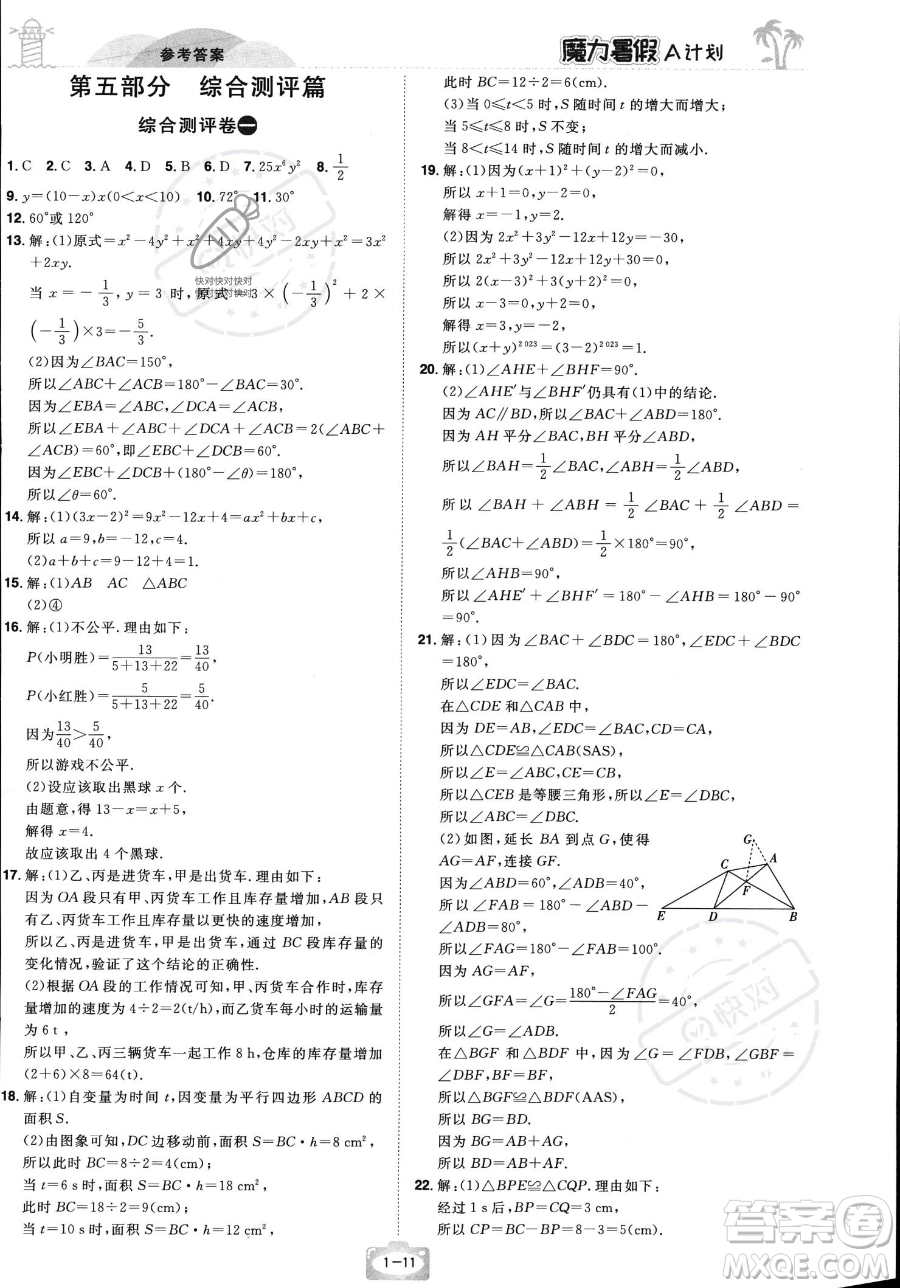 参考答案
魔力暑假 A计划
第五部分 综合测评篇
综合测评卷一
1. C 2. C 3. A 4. D 5. B 6. D 7. 25x⁶y² 8. 1/2
9. y=(10-x)x(0<x<10) 10. 72° 11. 30°
12. 60°或120°
13. 解:(1)原式=x²-4y²+x²+4xy+4y²-2xy+x²=3x²
+2xy.
当 x=-1/3, y=3 时, 原式=3×(-1/3)²+2×
(-1/3)×3=-5/3.
(2)因为∠BAC=150°,
所以∠ABC+∠ACB=180°-∠BAC=30°.
因为∠EBA=∠ABC,∠DCA=∠ACB,
所以∠EBA+∠ABC+∠DCA+∠ACB=2(∠ABC+
∠ACB)=60°,即∠EBC+∠DCB=60°.
因为∠EBC+∠DCB+(180°-∠θ)=180°,
所以∠θ=60°.
14. 解:(1)(3x-2)²=9x²-12x+4=ax²+bx+c,
所以 a=9,b=-12,c=4.
(2)a+b+c=9-12+4=1.
15. 解:(1)AB AC △ABC
(2)④
16. 解:(1)不公平.理由如下:
P(小明胜)=13/(5+13+22)=13/40,
P(小红胜)=5/(5+13+22)=5/40.
因为13/40>5/40,
所以游戏不公平.
(2)设应该取出 x 个黑球.
由题意,得 13-x=x+5,
解得 x=4.
故应该取出 4 个黑球.
17. 解:(1)乙、丙是进货车,甲是出货车.理由如下:
因为 OA 段只有甲、丙货车工作且库存量增加,AB 段
只有乙、丙货车工作且库存量以更快的速度增加,
所以乙、丙是进货车,甲是出货车,通过 BC 段库存量的
变化情况,验证了这个结论的正确性.
(2)根据 OA 段的工作情况可知,甲、丙货车工作,库存
量增加的速度为 4÷2=2(t/h),而乙货车每小时的运输量
为 6 t,
所以甲、乙、丙三辆货车一起工作 8 h,仓库的库存量增加
(2+6)×8=64(t).
18. 解:(1)自变量为时间 t,因变量为平行四边形 ABCD 的
面积 S.
(2)由图象可知,DC 边移动前,面积 S=BC·h=8 cm²,
所以此时 BC=8÷2=4(cm);
当 t=6 s 时,面积 S=BC·h=18 cm²,
此时 BC=18÷2=9(cm);
当 t=10 s 时,面积 S=BC·h=12 cm²,
此时 BC=12÷2=6(cm).
(3)当 0≤t<5 时,S 随时间 t 的增大而增大;
当 5≤t≤8 时,S 不变;
当 8<t≤14 时,S 随时间 t 的增大而减小.
19. 解:(1)因为(x+1)²+(y-2)²=0,
所以 x+1=0,y-2=0,
解得 x=-1,y=2.
所以 2x²-12x+18+|-y+2|=0,
所以 2(x-3)²+|y+2|=0,
所以 x-3=0,y+2=0,
解得 x=3,y=-2.
所以(x+y)²⁰²³=(3-2)²⁰²³=1.
20. 解:(1)∠AHE+∠BHF=90°.
(2)∠AHE′与∠BHF′仍具有(1)中的结论.
因为 AC∥BD,所以∠BAC+∠ABD=180°.
因为 AH 平分∠BAC,BH 平分∠ABD,
所以∠BAH=1/2∠BAC,∠ABH=1/2∠ABD,
所以∠BAH+∠ABH=1/2∠BAC+1/2∠ABD=
1/2(∠BAC+∠ABD)=1/2×180°=90°,
所以∠AHB=90°,
所以∠AHE′+∠BHF′=180°-∠AHB=180°-
90°=90°.
21. 解:(1)因为∠BAC+∠BDC=180°,∠EDC+∠BDC
=180°,
所以∠EDC=∠BAC.
在△CDE和△CAB 中,
因为 DE=AB,∠EDC=∠BAC,CD=CA,
所以△CDE≌△CAB(SAS),
所以∠E=∠DBC,CE=CB,
所以△CEB 是等腰三角形,所以∠E=∠DBC.
(2)如图,延长 BA 到点 G,使得
AG=AF,连接 GF.
所以∠FAB=180°-∠E-∠ABD
所以∠FAG=180°-∠FAB=100°.
因为 AG=AF,
所以∠GFA=∠G=(180°-∠FAG)/2=40°,
所以∠G=∠ADB.
在△BGF 和△BDF 中,∠G=∠FDB,∠GBF=
所以△BGF≌△BDF(AAS),
所以 BG=BD.
因为 BG=AB+AG=AB+AF,
所以 BD=AB+AF.
22. 解:(1)△BPE≌△CQP.理由如下:
经过 1 s 后,BP=CQ=3 cm,
所以 CP=BC-BP=8-3=5(cm).
G
C
A
F
E
D
B
1-11
快对
答案圈